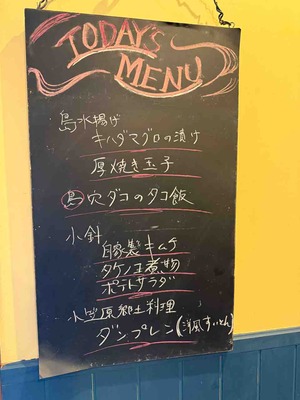 TODAY'S
MENU
島水揚げ
キハダマグロの漬け
厚焼き玉子
島穴ダコのタコ飯
小鉢
自家製キムチ
タケノコ煮物
ポテトサラダ
小笠原郷土料理
ダンプレン(洋風すいとん)